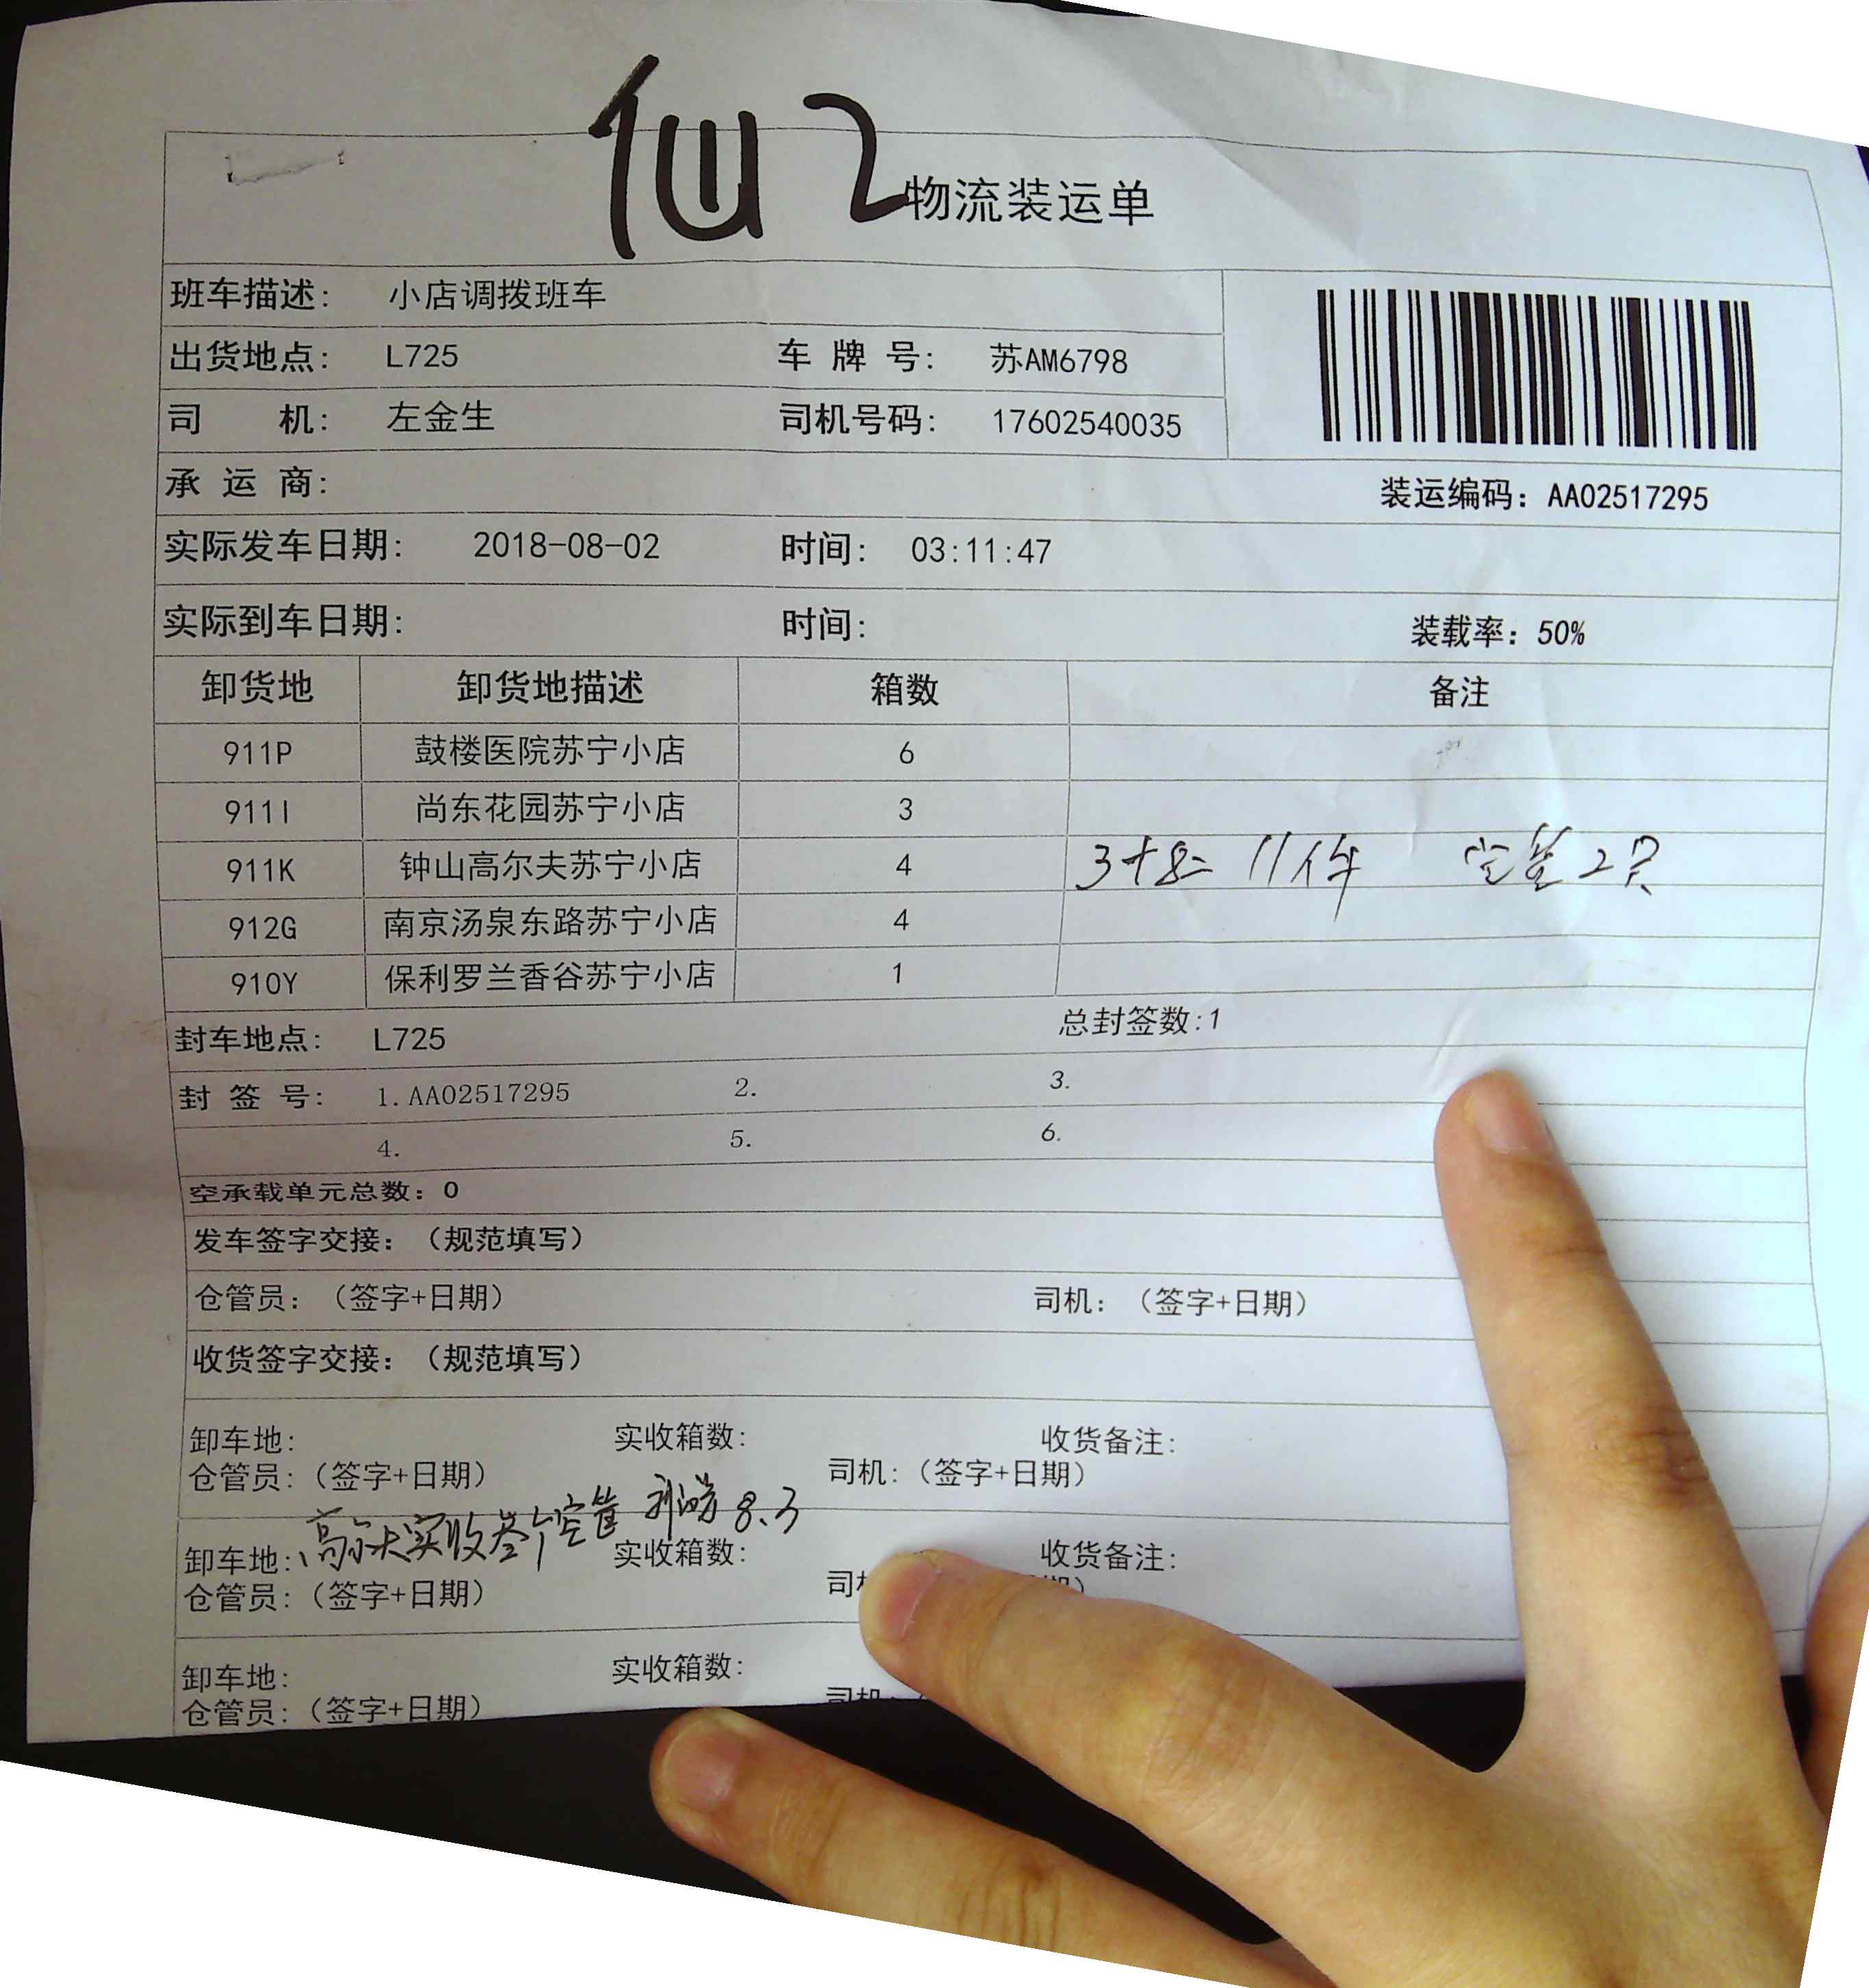 仙2
物流装运单
班车描述: 小店调拨班车
出货地点: L725 车牌号: 苏AM6798
司机: 左金生 司机号码: 17602540035
承运商:
装运编码: AA02517295
实际发车日期: 2018-08-02 时间: 03:11:47
实际到车日期: 时间: 装载率: 50%
卸货地 卸货地描述 箱数 备注
911P 鼓楼医院苏宁小店 6
911I 尚东花园苏宁小店 3
911K 钟山高尔夫苏宁小店 4 11件 空筐2只
912G 南京汤泉东路苏宁小店 4
910Y 保利罗兰香谷苏宁小店 1
封车地点: L725 总封签数:1
封签号: 1.AA02517295 2. 3.
4. 5. 6.
空承载单元总数: 0
发车签字交接: (规范填写)
仓管员: (签字+日期) 司机: (签字+日期)
收货签字交接: (规范填写)
卸车地: 实收箱数: 收货备注:
仓管员: (签字+日期) 司机: (签字+日期)
高尔夫实收叁个空筐 8.3
卸车地: 实收箱数: 收货备注:
仓管员: (签字+日期)
卸车地: 实收箱数:
仓管员: (签字+日期) 司机: